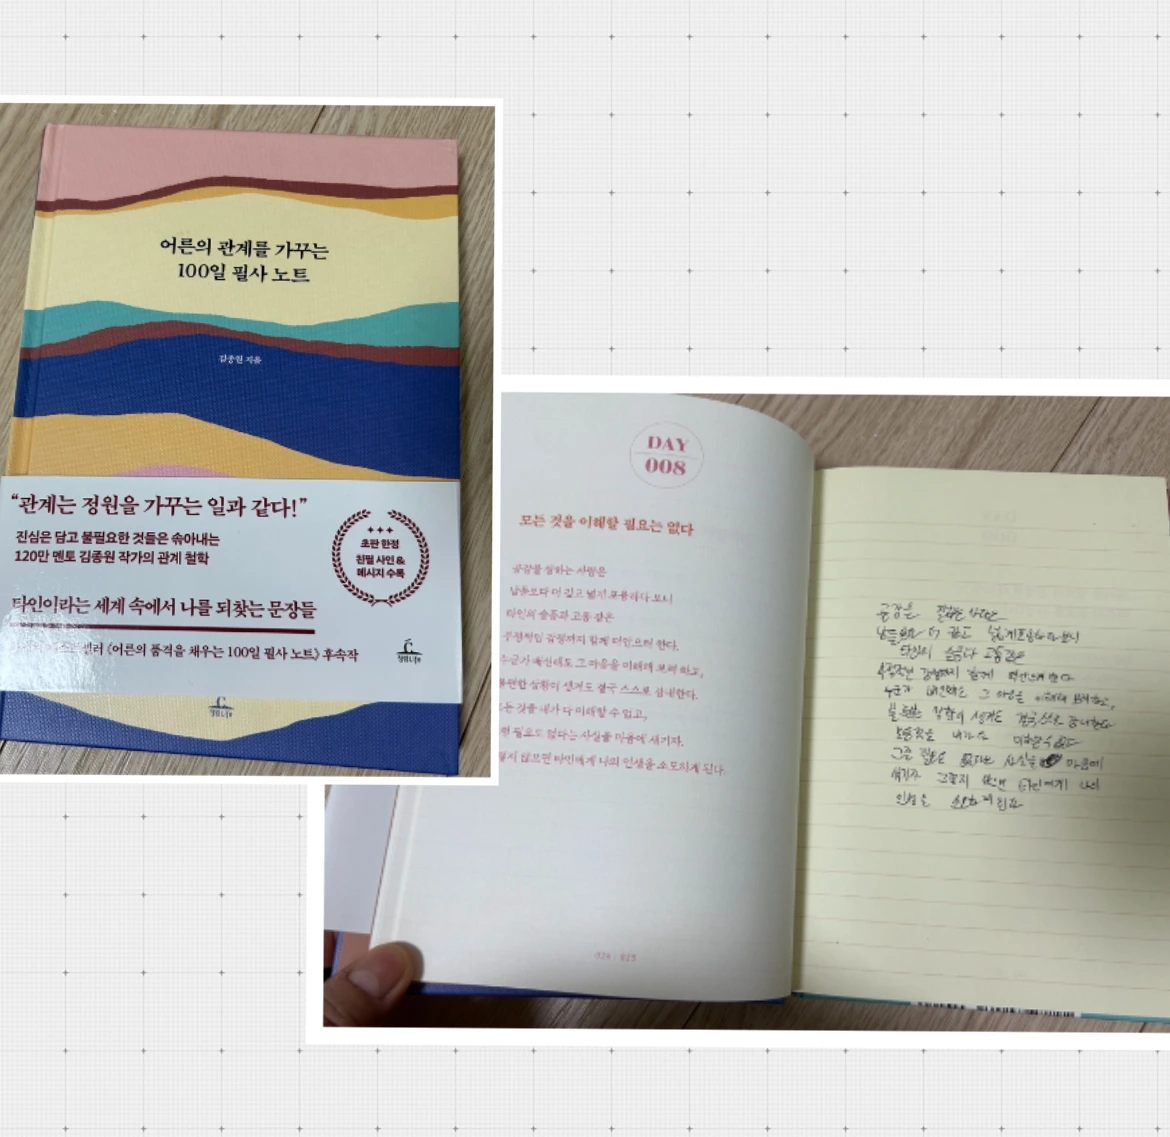 어른의 관계를 가꾸는
100일 필사 노트
김종원 지음
“관계는 정원을 가꾸는 일과 같다!”
진심은 담고 불필요한 것들은 솎아내는
120만 멘토 김종원 작가의 관계 철학
초판 한정
친필 사인 &
메시지 수록
타인이라는 세계 속에서 나를 되찾는 문장들
《어른의 품격을 채우는 100일 필사 노트》 후속작
청림Life
청림Life
DAY
008
모든 것을 이해할 필요는 없다
공감을 잘하는 사람은
남들보다 더 깊고 넓게 포용하다 보니
타인의 슬픔과 고통 같은
부정적인 감정까지 함께 떠안으려 한다.
누군가 배신해도 그 마음을 이해해 보려 하고,
불편한 상황이 생겨도 결국 스스로 감내한다.
모든 것을 내가 다 이해할 수 없고,
필요도 없다는 사실을 마음에 새기자.
않으면 타인에게 나의 인생을 소모하게 된다.
공감을 잘하는 사람은
남들보다 더 깊고 넓게 포용하다 보니
타인의 슬픔과 고통같은
부정적인 감정까지 함께 떠안으려 한다
누군가 배신해도 그 마음을 이해해 보려하고,
불편한 상황이 생겨도 결국 스스로 감내한다
모든것을 내가 다 이해할 수 없고
그럴 필요도 없다는 사실을 마음에
새기자 그렇지 않으면 타인에게 나의
인생을 소모하게 된다